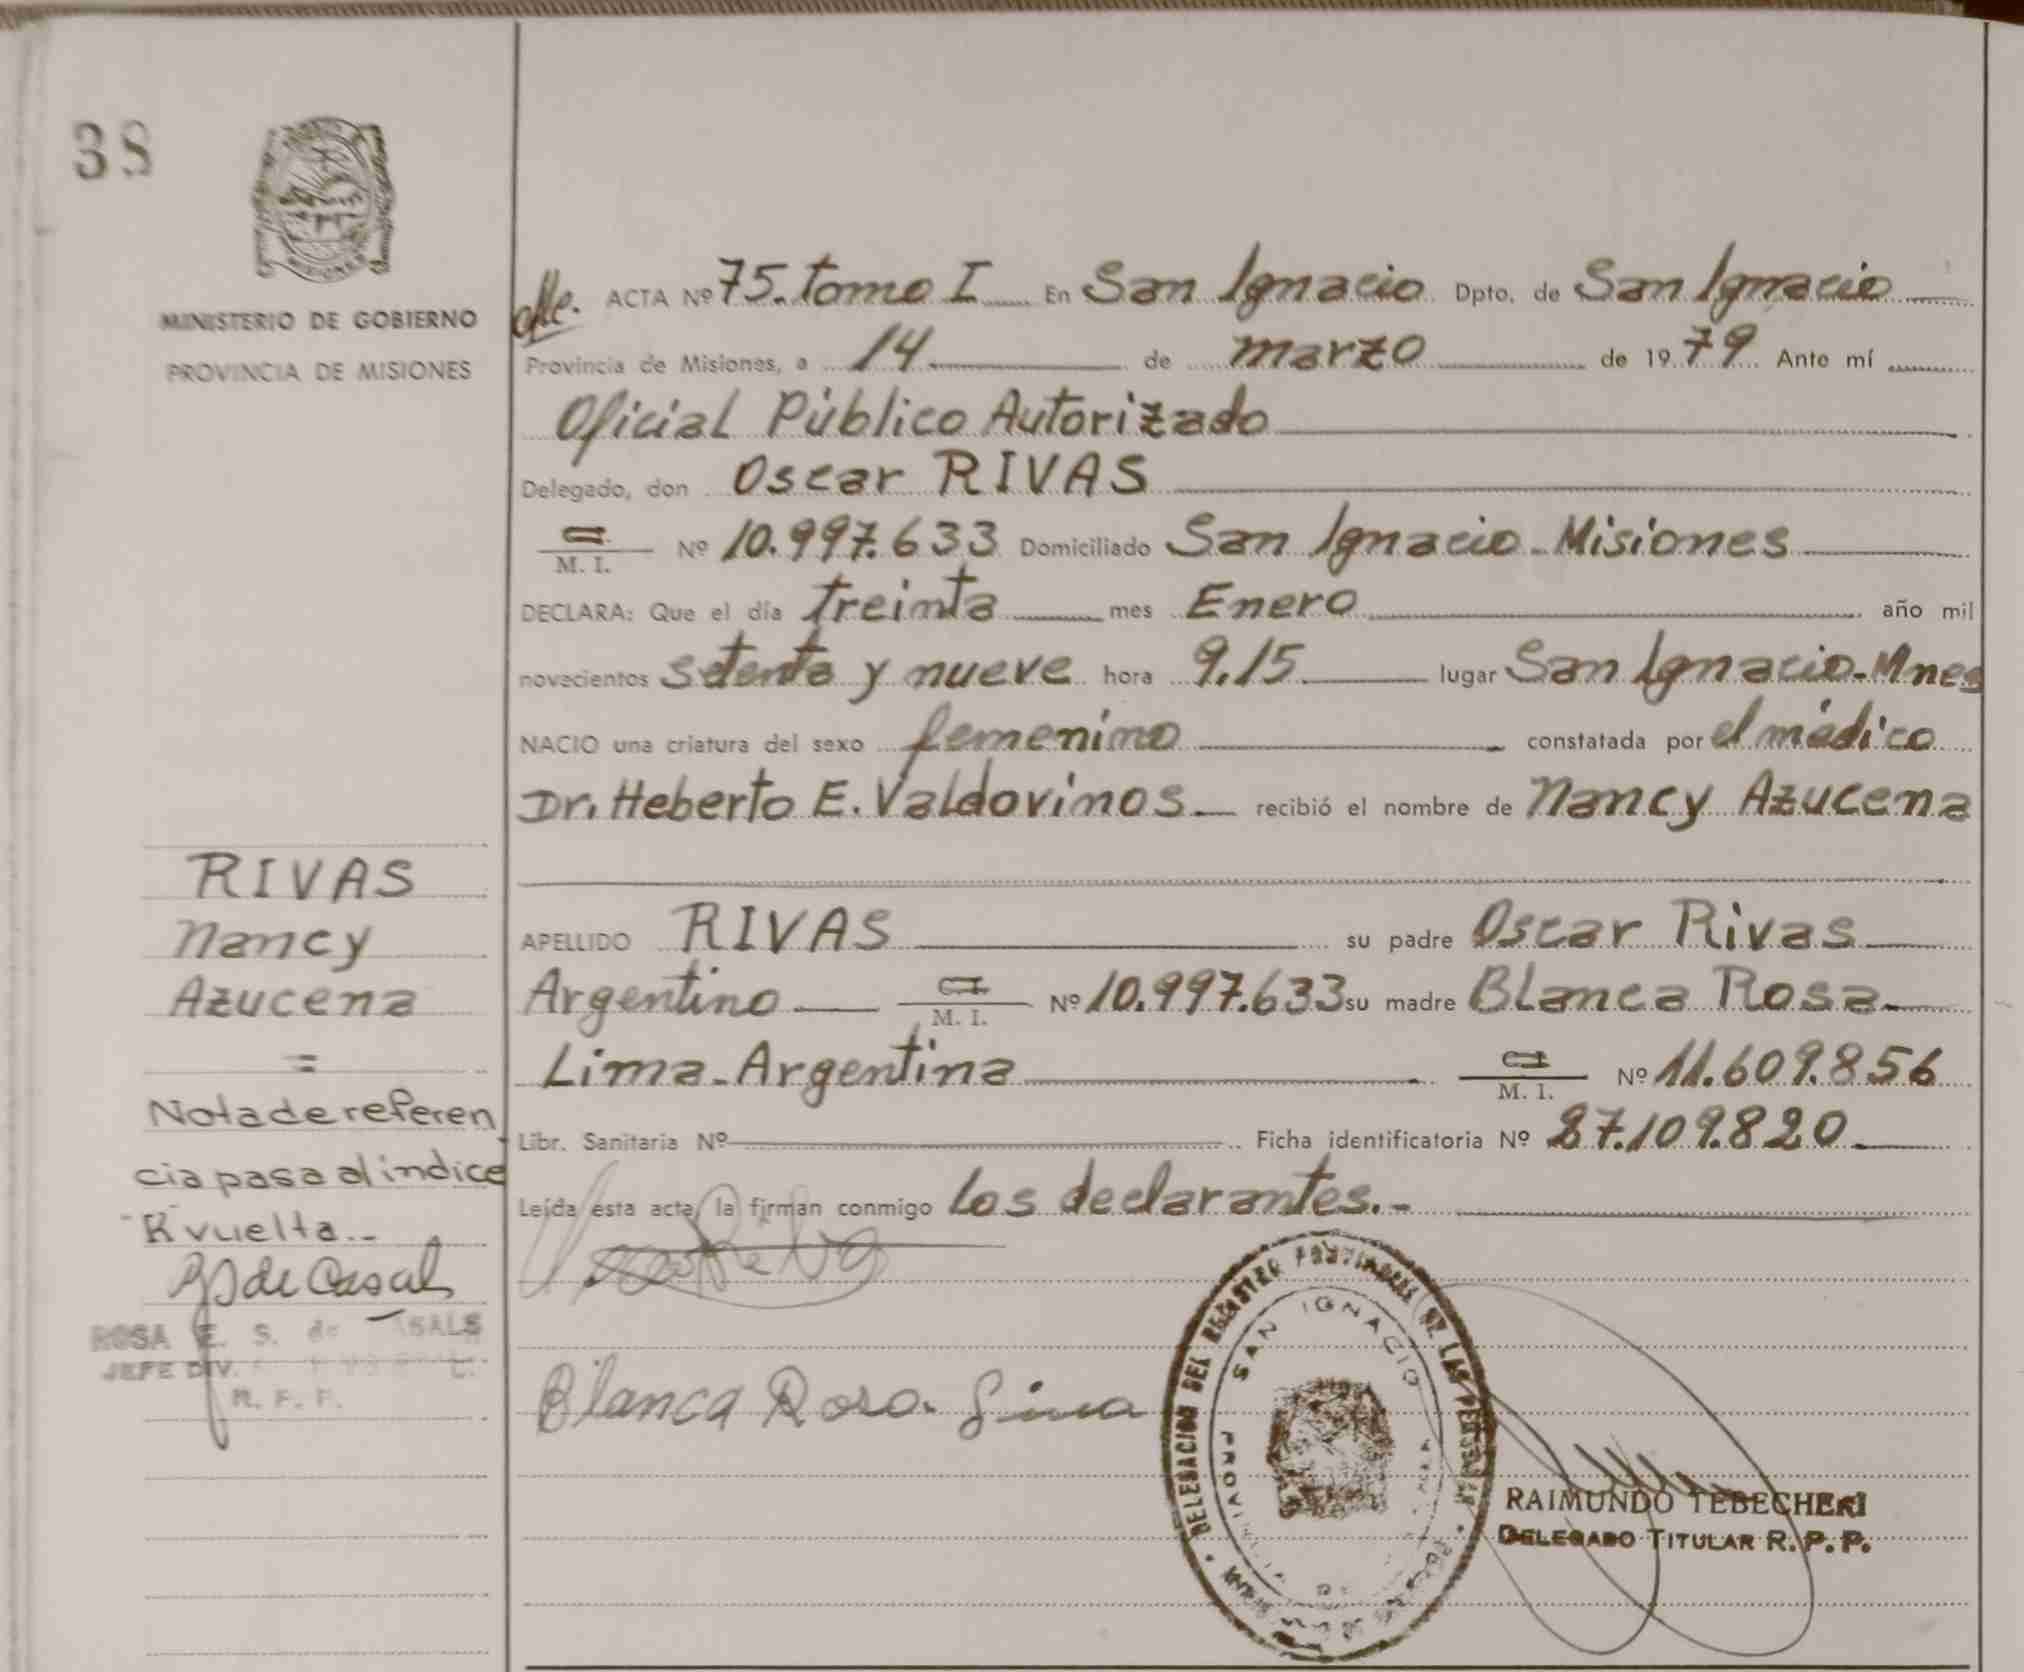 38
MISIONES
MINISTERIO DE GOBIERNO
PROVINCIA DE MISIONES
ACTA Nº 75. tomo I En San Ignacio Dpto. de San Ignacio
Provincia de Misiones, a 14 de marzo de 1979 Ante mí
Oficial Público Autorizado
Delegado, don Oscar RIVAS
M. I. Nº 10.997.633 Domiciliado San Ignacio-Misiones
DECLARA: Que el día treinta mes Enero año mil
novecientos setenta y nueve hora 9.15 lugar San Ignacio-Mnes
NACIO una criatura del sexo femenino constatada por el médico
Dr. Heberto E. Valdovinos.- recibió el nombre de Nancy Azucena
RIVAS
Nancy
Azucena
=
Nota de referen
cia pasa al índice
"R" vuelta.-
de Casals
ROSA E. S. de CASALS
JEFE DIV.
R. P. P.
APELLIDO RIVAS su padre Oscar Rivas
Argentino C.I. M. I. Nº 10.997.633 su madre Blanca Rosa
Lima-Argentina C.I. M. I. Nº 11.609.856
Libr. Sanitaria Nº Ficha identificatoria Nº 27.109.820
Leída esta acta, la firman conmigo los declarantes.-
Blanca Rosa Lima
DELEGACION DEL REGISTRO PROVINCIAL DE LAS PERSONAS
SAN IGNACIO
RAIMUNDO TEBECHERI
DELEGADO TITULAR R. P. P.